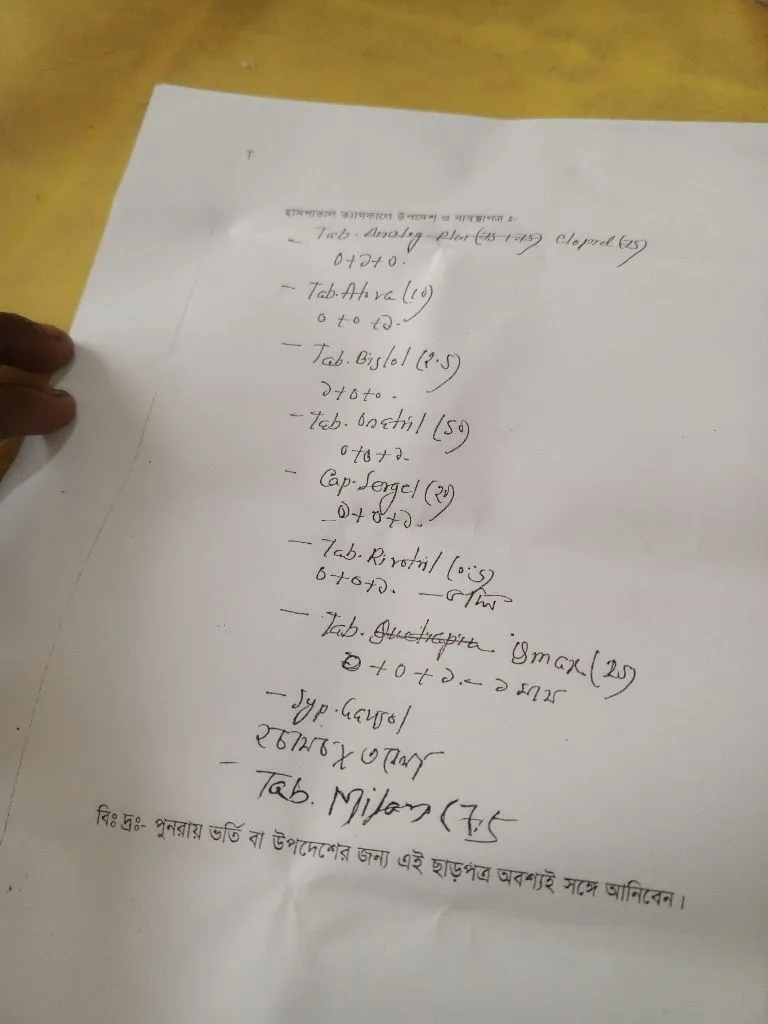 হাসপাতাল ত্যাগকালে উপদেশ ও ব্যবস্থাপত্র ঃ
- Tab. Analog Plus (75+75) Cloprel (75)
0+১+0.
- Tab. Atova (10)
0+0+১.
- Tab. Bislol (2.5)
১+0+0.
- Tab. Onetril (50)
0+0+১.
- Cap. Sergel (20)
১+0+১.
- Tab. Rivotril (0.5)
0+0+১.
- Tab. ismax (20)
0+0+১. - ১ মাস
- Syp.
২ চামচ X ৩ বেলা
- Tab. (7.5
বিঃ দ্রঃ- পুনরায় ভর্তি বা উপদেশের জন্য এই ছাড়পত্র অবশ্যই সঙ্গে আনিবেন।